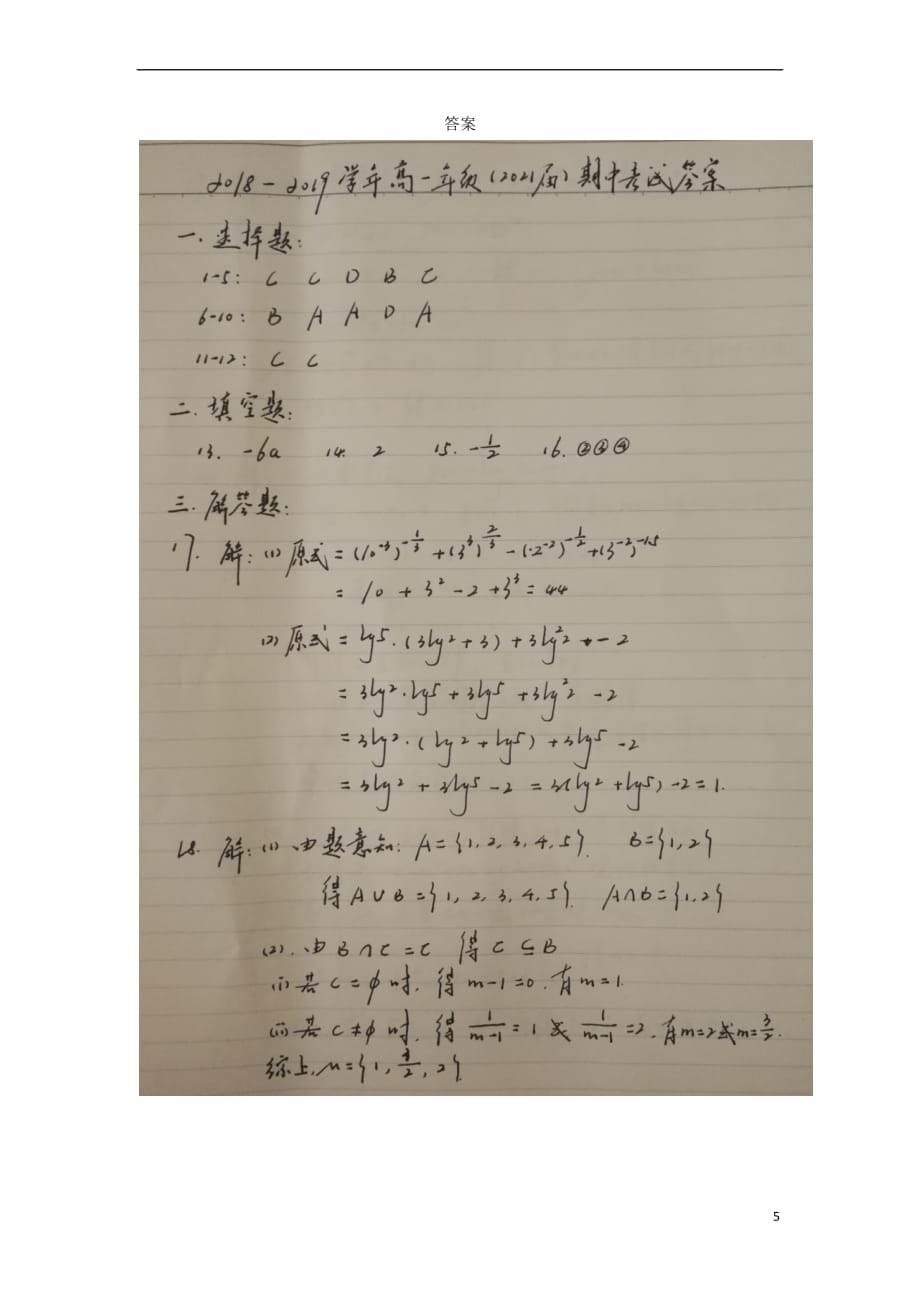 答案
2018-2019学年高一年级(2021届)期中考试答案
一.选择题:
1-5: C C D B C
6-10: B A A D A
11-12: C C
二.填空题:
13. -6a 14. 2 15. -1/2 16. ②③④
三.解答题:
17. 解:(1)原式=(10⁻³)^(-1/3)+(3³)^(2/3)-(2⁻²)^(-1/2)+(3⁻²)^(-1.5)
=10+3²-2+3³=44
(2)原式=lg5·(3lg2+3)+3lg²2-2
=3lg2·lg5+3lg5+3lg²2-2
=3lg2·(lg2+lg5)+3lg5-2
=3lg2+3lg5-2=3(lg2+lg5)-2=1.
18. 解:(1)由题意知:A={1,2,3,4,5}. B={1,2}
得A∪B={1,2,3,4,5}. A∩B={1,2}
(2).由B∩C=C 得C⊆B
(i)若C=ϕ时,得m-1=0.有m=1.
(ii)若C≠ϕ时,得1/(m-1)=1或1/(m-1)=2.有m=2或m=3/2.
综上,M={1,3/2,2}.
5